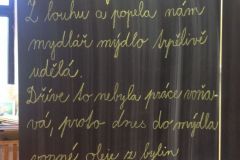 Z louhu a popela nám
mydlář mýdlo trpělivě
udělá.
Dříve to nebyla práce voňa-
vá, proto dnes do mýdla
vonné oleje z bylin